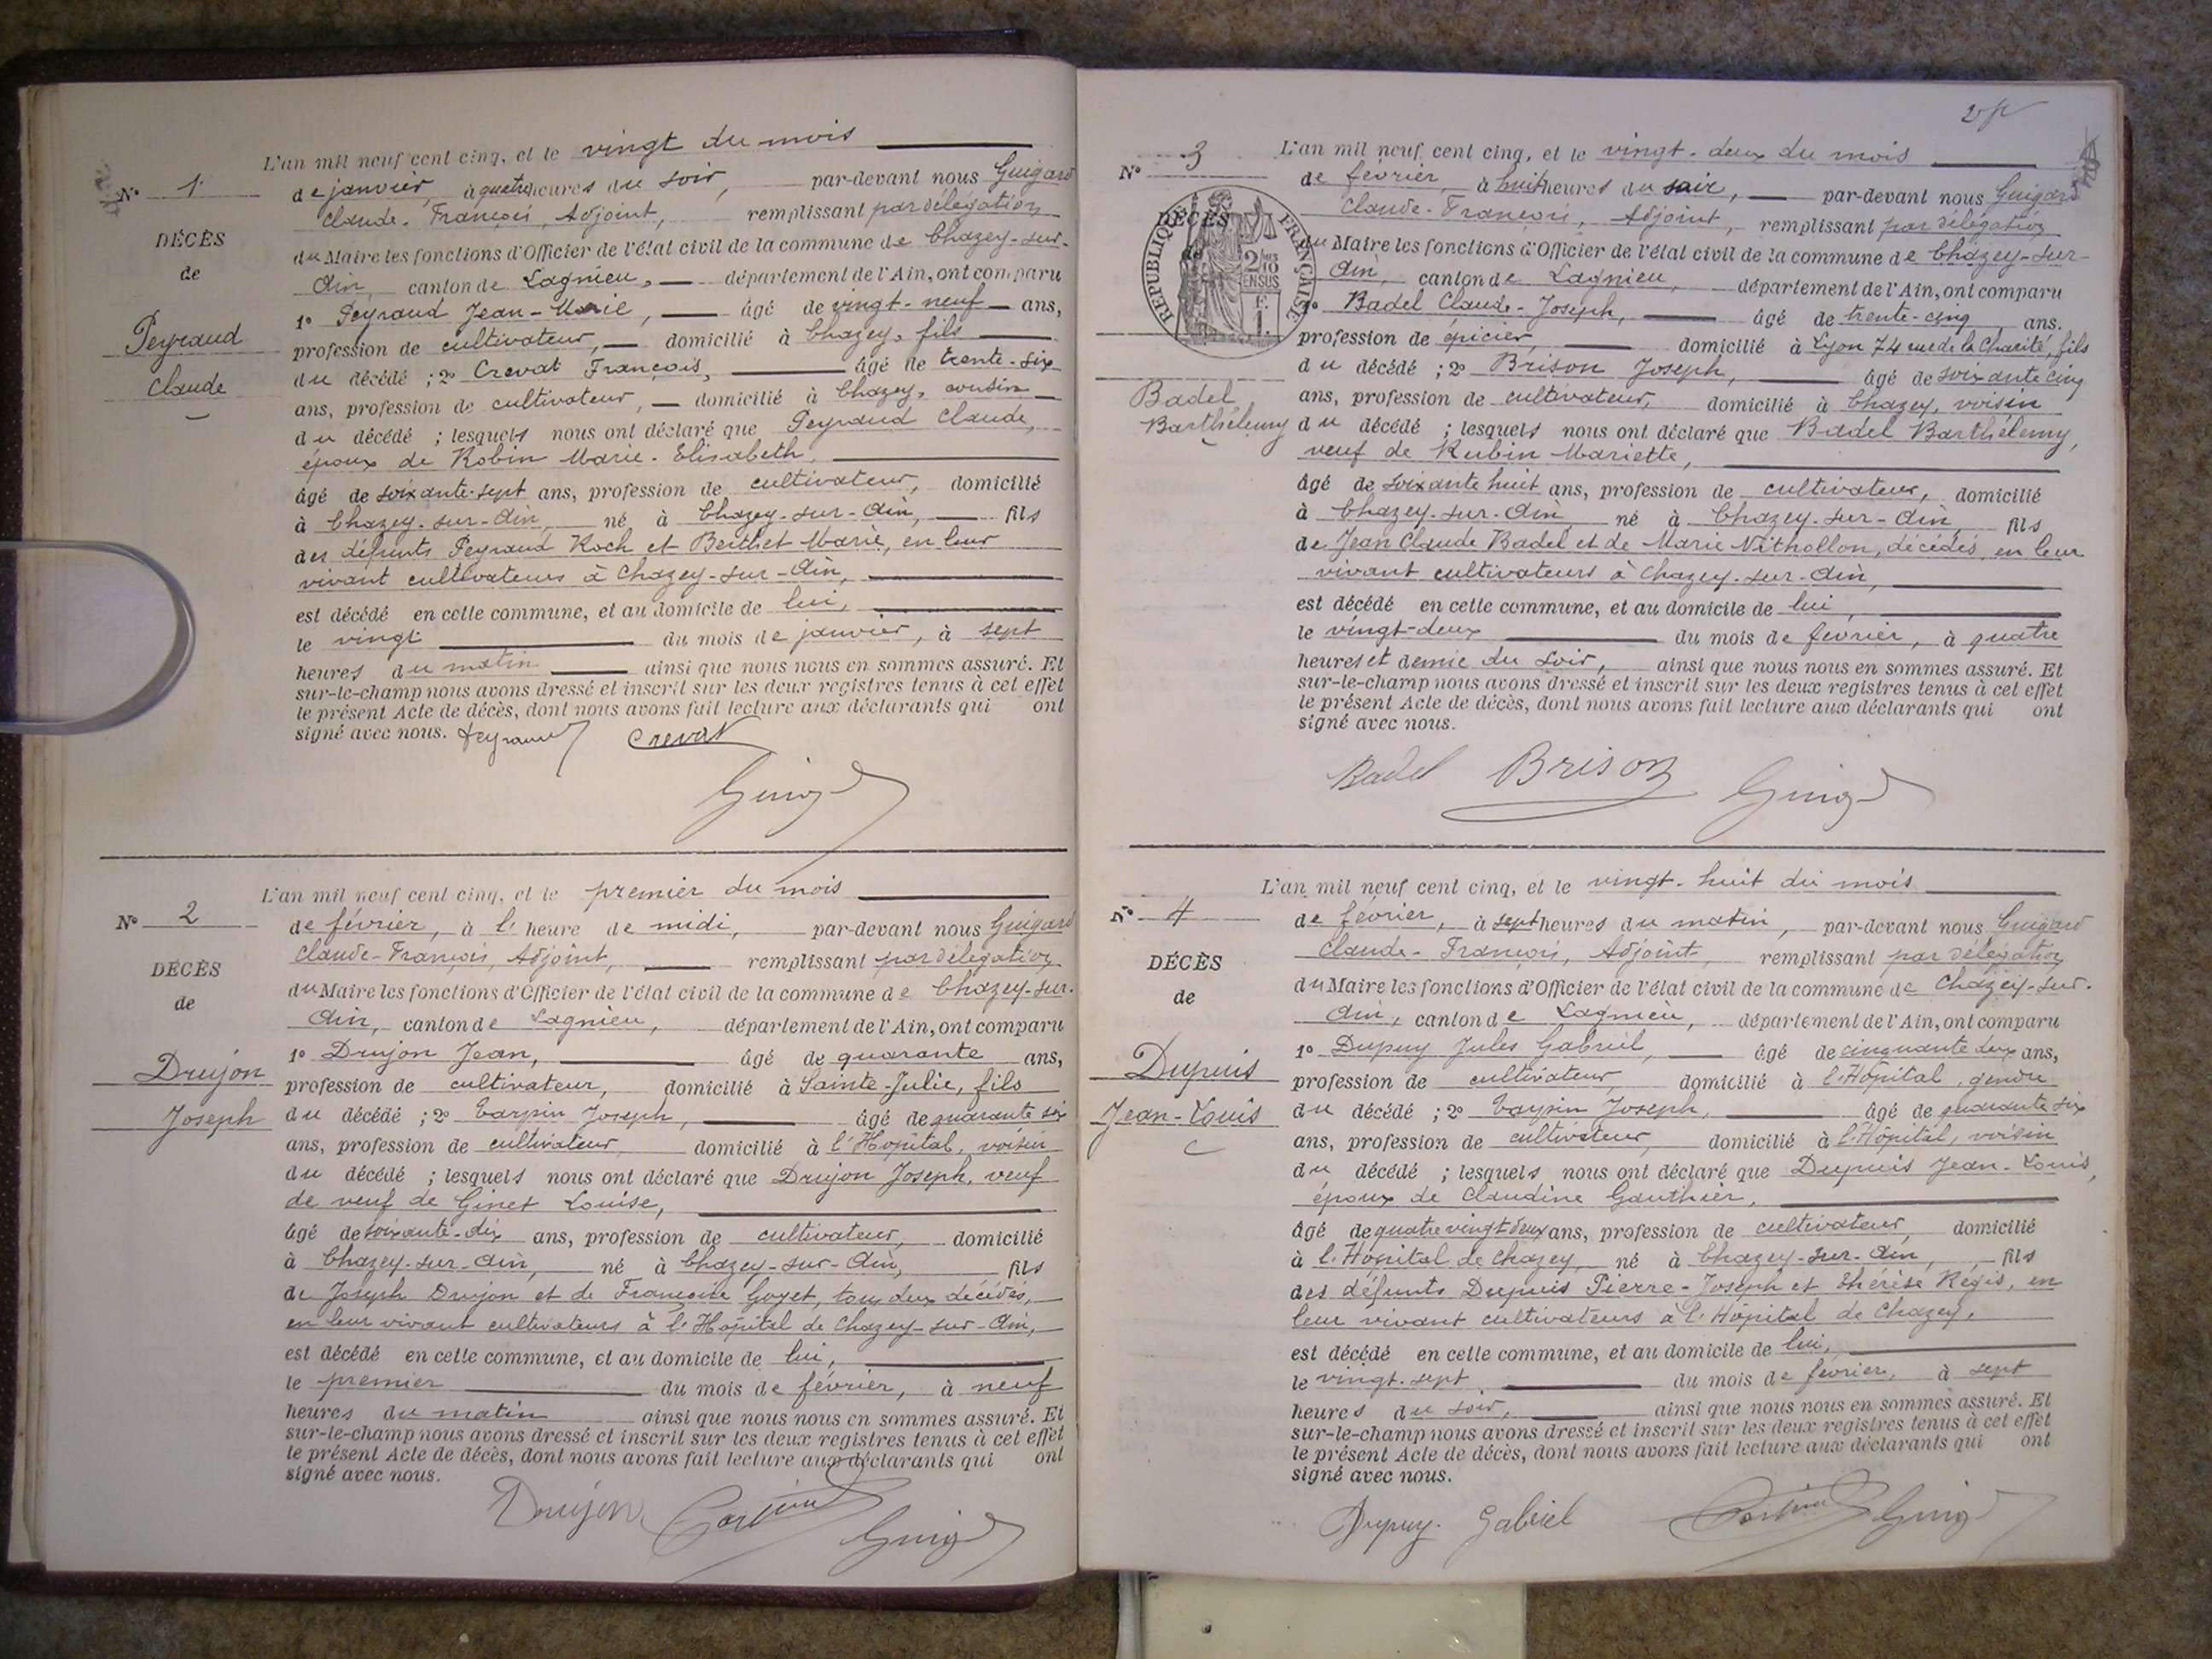 N° 1
DÉCÈS
de
Peyraud
Claude
L'an mil neuf cent cinq, et le vingt du mois
de janvier, à quatre heures du soir, par-devant nous Guigard
Claude-François, Adjoint, remplissant par délégation
du Maire les fonctions d'Officier de l'état civil de la commune de Chazey-sur-
Ain, canton de Lagnieu, département de l'Ain, ont comparu
1° Peyraud Jean-Marie, âgé de vingt-neuf ans,
profession de cultivateur, domicilié à Chazey, fils
du décédé ; 2° Crevat François, âgé de trente-six
ans, profession de cultivateur, domicilié à Chazey, cousin
du décédé ; lesquels nous ont déclaré que Peyraud Claude,
époux de Robin Marie-Elisabeth,
âgé de soixante-sept ans, profession de cultivateur, domicilié
à Chazey-sur-Ain, né à Chazey-sur-Ain, fils
des défunts Peyraud Roch et Berthet Marie, en leur
vivant cultivateurs à Chazey-sur-Ain,
est décédé en cette commune, et au domicile de lui,
le vingt du mois de janvier, à sept
heures du matin ainsi que nous nous en sommes assuré. Et
sur-le-champ nous avons dressé et inscrit sur les deux registres tenus à cet effet
le présent Acte de décès, dont nous avons fait lecture aux déclarants qui ont
signé avec nous. Peyraud Crevat
Guigard
N° 2
DÉCÈS
de
Drujon
Joseph
L'an mil neuf cent cinq, et le premier du mois
de février, à l'heure de midi, par-devant nous Guigard
Claude-François, Adjoint, remplissant par délégation
du Maire les fonctions d'Officier de l'état civil de la commune de Chazey-sur-
Ain, canton de Lagnieu, département de l'Ain, ont comparu
1° Drujon Jean, âgé de quarante ans,
profession de cultivateur, domicilié à Sainte-Julie, fils
du décédé ; 2° Carpin Joseph, âgé de quarante six
ans, profession de cultivateur, domicilié à l'Hopital, voisin
du décédé ; lesquels nous ont déclaré que Drujon Joseph, veuf
de veuf de Ginet Louise,
âgé de soixante-dix ans, profession de cultivateur, domicilié
à Chazey-sur-Ain, né à Chazey-sur-Ain, fils
de Joseph Drujon et de Françoise Goyet, tous deux décédés,
en leur vivant cultivateurs à l'Hopital de Chazey-sur-Ain,
est décédé en cette commune, et au domicile de lui,
le premier du mois de février, à neuf
heures du matin ainsi que nous nous en sommes assuré. Et
sur-le-champ nous avons dressé et inscrit sur les deux registres tenus à cet effet
le présent Acte de décès, dont nous avons fait lecture aux déclarants qui ont
signé avec nous.
Drujon Carpin Guigard
N° 3
DÉCÈS
de
RÉPUBLIQUE FRANÇAISE
2/10
EN SUS
Badel
Barthélemy
L'an mil neuf cent cinq, et le vingt-deux du mois
de février, à huit heures du soir, par-devant nous Guigard
Claude-François, Adjoint, remplissant par délégation
du Maire les fonctions d'Officier de l'état civil de la commune de Chazey-sur-
Ain, canton de Lagnieu, département de l'Ain, ont comparu
1° Badel Claude-Joseph, âgé de trente-cinq ans.
profession de épicier, domicilié à Lyon 74 rue de la Charité, fils
du décédé ; 2° Brison Joseph, âgé de soixante cinq
ans, profession de cultivateur, domicilié à Chazey, voisin
du décédé ; lesquels nous ont déclaré que Badel Barthélemy,
veuf de Rubin Mariette,
âgé de soixante huit ans, profession de cultivateur, domicilié
à Chazey-sur-Ain, né à Chazey-sur-Ain, fils
de Jean Claude Badel et de Marie Nithollon, décédés, en leur
vivant cultivateurs à Chazey-sur-Ain,
est décédé en cette commune, et au domicile de lui,
le vingt-deux du mois de fevrier, à quatre
heures et demie du soir, ainsi que nous nous en sommes assuré. Et
sur-le-champ nous avons dressé et inscrit sur les deux registres tenus à cet effet
le présent Acte de décès, dont nous avons fait lecture aux déclarants qui ont
signé avec nous.
Badel Brison Guigard
N° 4
DÉCÈS
de
Dupuis
Jean-Louis
L'an mil neuf cent cinq, et le vingt-huit du mois
de fevrier, à sept heures du matin, par-devant nous Guigard
Claude-François, Adjoint, remplissant par délégation
du Maire les fonctions d'Officier de l'état civil de la commune de Chazey-sur-
Ain, canton de Lagnieu, département de l'Ain, ont comparu
1° Dupuy Jules Gabriel, âgé de cinquante deux ans,
profession de cultivateur, domicilié à l'Hôpital, gendre
du décédé ; 2° Carpin Joseph, âgé de quarante six
ans, profession de cultivateur, domicilié à l'Hôpital, voisin
du décédé ; lesquels nous ont déclaré que Dupuis Jean-Louis,
époux de Claudine Gauthier,
âgé de quatre vingt deux ans, profession de cultivateur, domicilié
à l'Hôpital de Chazey, né à Chazey-sur-Ain, fils
des défunts Dupuis Pierre-Joseph et Thérèse Régis, en
leur vivant cultivateurs à l'Hôpital de Chazey,
est décédé en cette commune, et au domicile de lui,
le vingt-sept du mois de fevrier, à sept
heures du soir, ainsi que nous nous en sommes assuré. Et
sur-le-champ nous avons dressé et inscrit sur les deux registres tenus à cet effet
le présent Acte de décès, dont nous avons fait lecture aux déclarants qui ont
signé avec nous.
Dupuy Gabriel Carpin Guigard